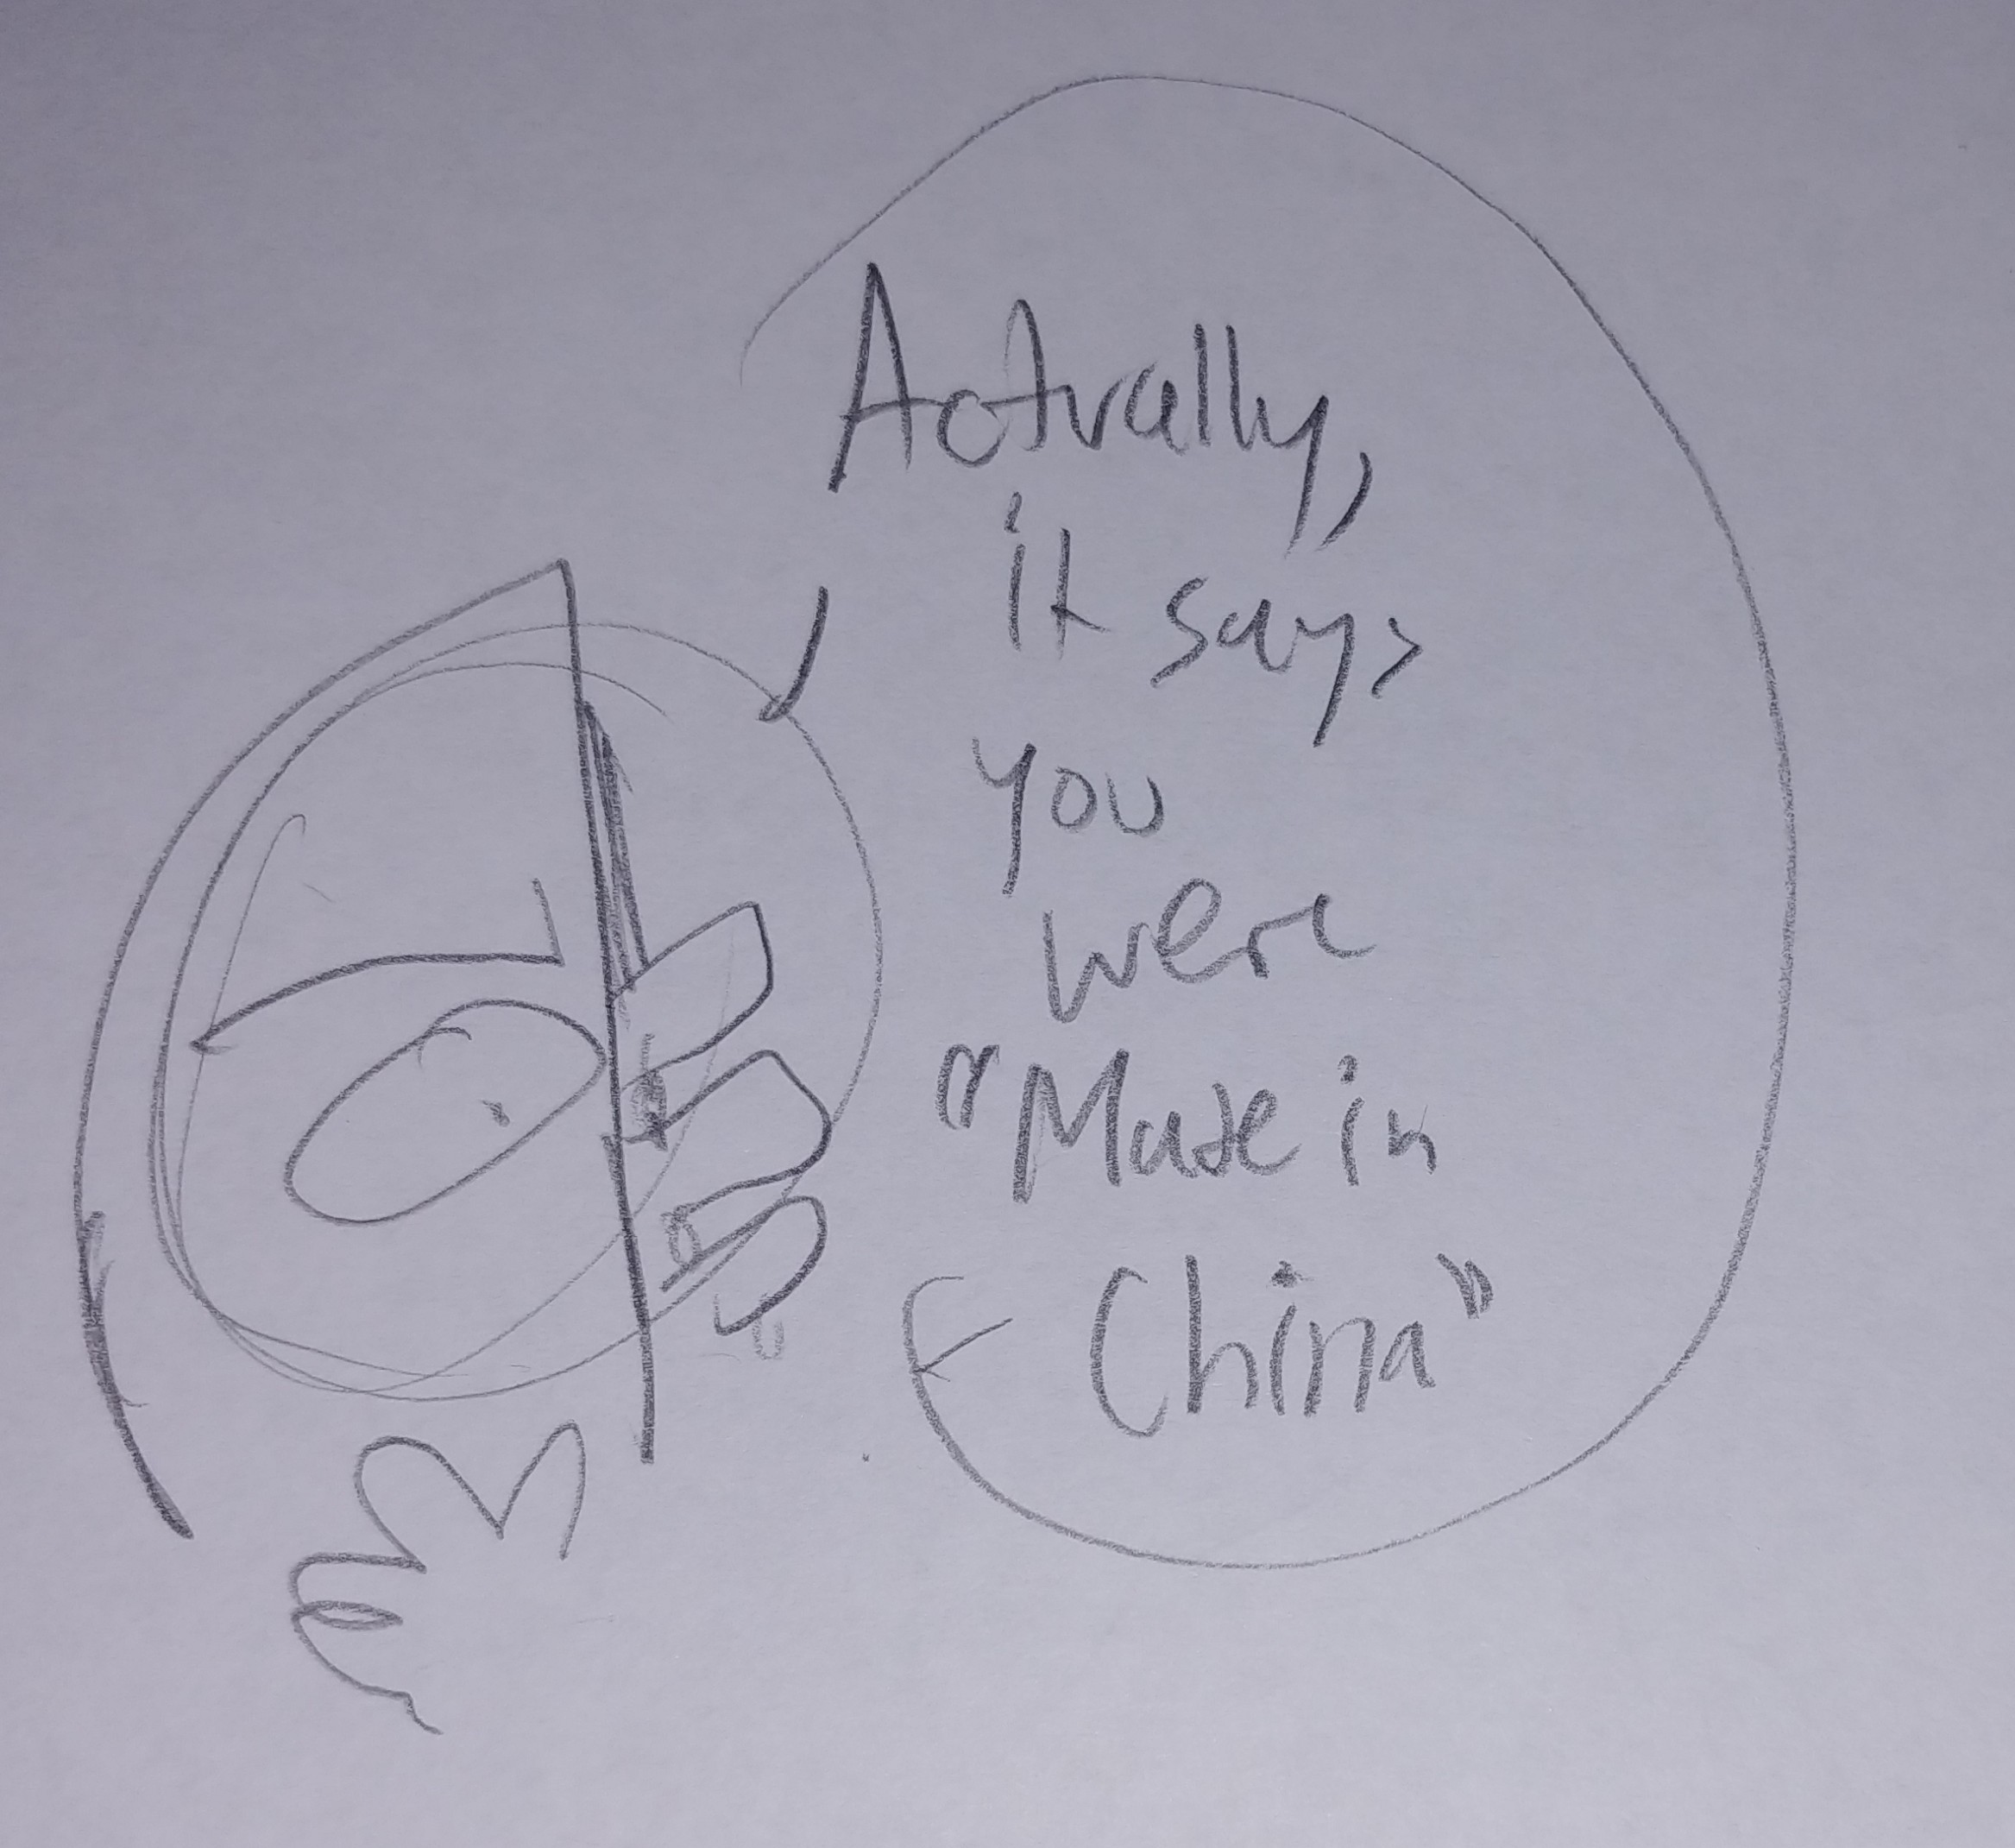 Actually,
it says
you
were
"Made in
China"